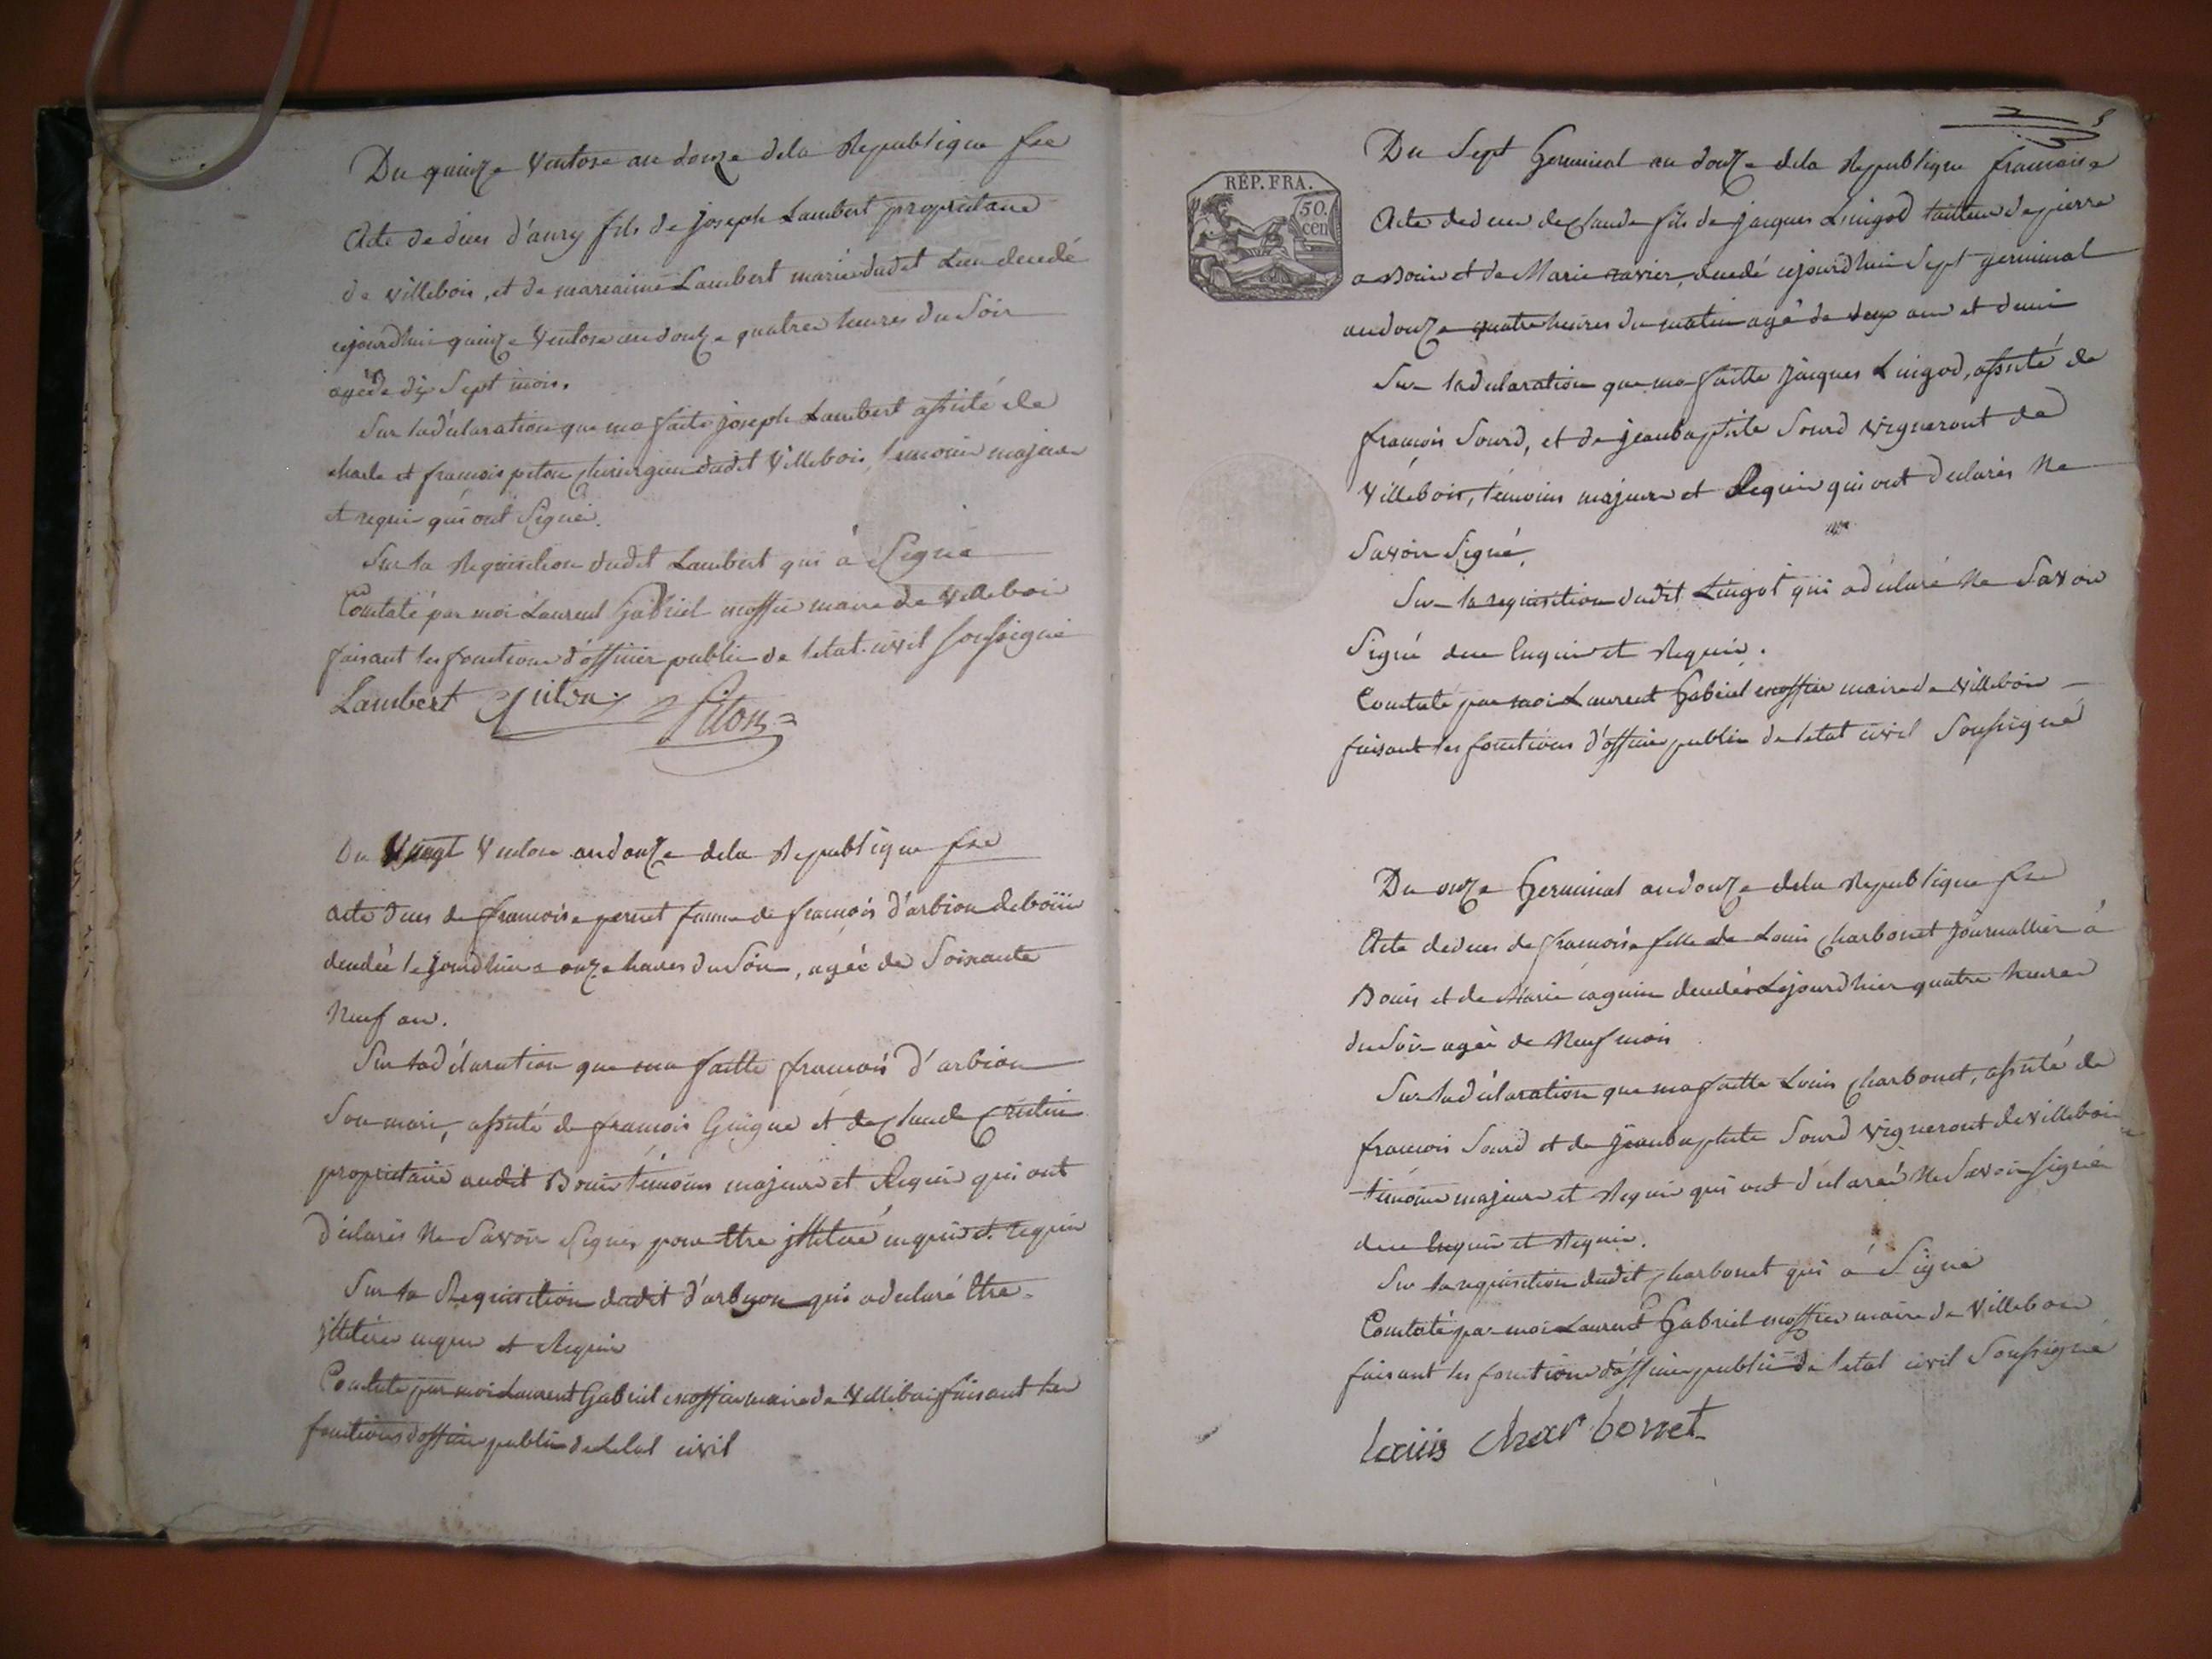 Du quinze Ventose an douze dela Republique fse
Acte de deces d'anry fils de joseph Lambert propriétaire
de villebois, et de mariaimé Lambert marié dudit Lieu decedé
cejourdhui quinze Ventose an douze quatre heures du Soir
agé de dix Sept mois.
Sur la déclaration que ma faite joseph Lambert assisté de
charle et francois piton chirurgien dudit Villebois, temoins majeurs
et requis qui ont Signé.
Sur la Requisition dudit Lambert qui à Signé
Constaté par moi Laurent Gabriel maire de Villebois
faisant les fonctions d'officier public de letat civil soussigné
Lambert piton Piton
Du Vingt Ventose an douze dela Republique fse
acte deces de francoise perret femme de francois d'arbion de bouis
decedée lejourdhier a onze heures du Soir, agée de Soixante
Neuf an.
Sur la déclaration que ma faitte francois d'arbion
Son mari, assisté de francois Guigue et de Claude Cretin
propriétaire audit Bouis témoins majeurs et Requis qui ont
déclarés Ne Savoir Signer pour être jlletéré enquis et requis
Sur la Requisition dudit d'arbyon qui a declaré être
jlletéré enquis et Requis
Constaté par moi Laurent Gabriel maire de Villebois faisant les
fonctions d'officier public de letat civil
Du Sept Germinal an douze dela Republique francaise
RÉP. FRA.
50.
cen
Acte de deces de Claude fils de jacques Luigod tailleur de pierre
a Bouis et de Marie ravier, decedé cejourdhui Sept germinal
an douze quatre heures du matin agé de deux ans et demi
Sur la declaration que ma faitte jacques Luigod, assisté de
francois Sourd, et de jeanbaptiste Sourd vigneront de
Villebois, témoins majeurs et Requis qui ont declarés Ne
Savoir Signé,
Sur la requisition dudit Luigot qui a déclaré Ne Savoir
Signé de ce Enquis et Requis.
Constaté par moi Laurent Gabriel maire de Villebois
faisant les fonctions d'officier public de letat civil Soussigné
Du onze Germinal an douze dela Republique fse
Acte de deces de francoise fille de Louis Charbonet journallier à
Bouis et de Marie caguin decedée Lejourdhier quatre heures
du Soir agée de Neuf mois
Sur la déclaration que ma faitte Louis Charbonet, assisté de
francois Sourd et de jeanbaptiste Sourd vigneront de villebois
témoins majeurs et Requis qui ont déclarés Ne Savoir signé
de ce Enquis et Requis.
Sur la requisition dudit Charbonet qui à Signé
Constaté par moi Laurent Gabriel maire de Villebois
faisant les fonctions d'officier public de letat civil Soussigné
louis charbonnet